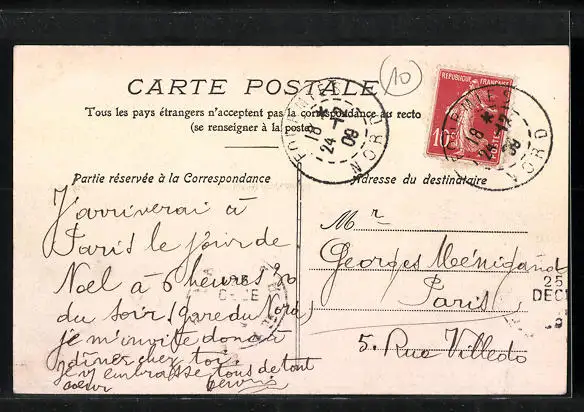 10
CARTE POSTALE
Tous les pays étrangers n'acceptent pas la correspondance au recto
(se renseigner à la poste)
RÉPUBLIQUE FRANÇAISE
10c
POSTES
FOURMIES
18 *
24 -12
08
NORD
18 *
24 -12
08
NORD
Partie réservée à la Correspondance
J'arriverai à
Paris le jour de
Noel à 6 heures 20
du soir (gare du Nord)
je m'invite donc à
dîner chez toi.
je vs embrasse tous de tout
coeur
Adresse du destinataire
Mr
Georges Ménigand
Paris
5. Rue Villedo
25
DEC